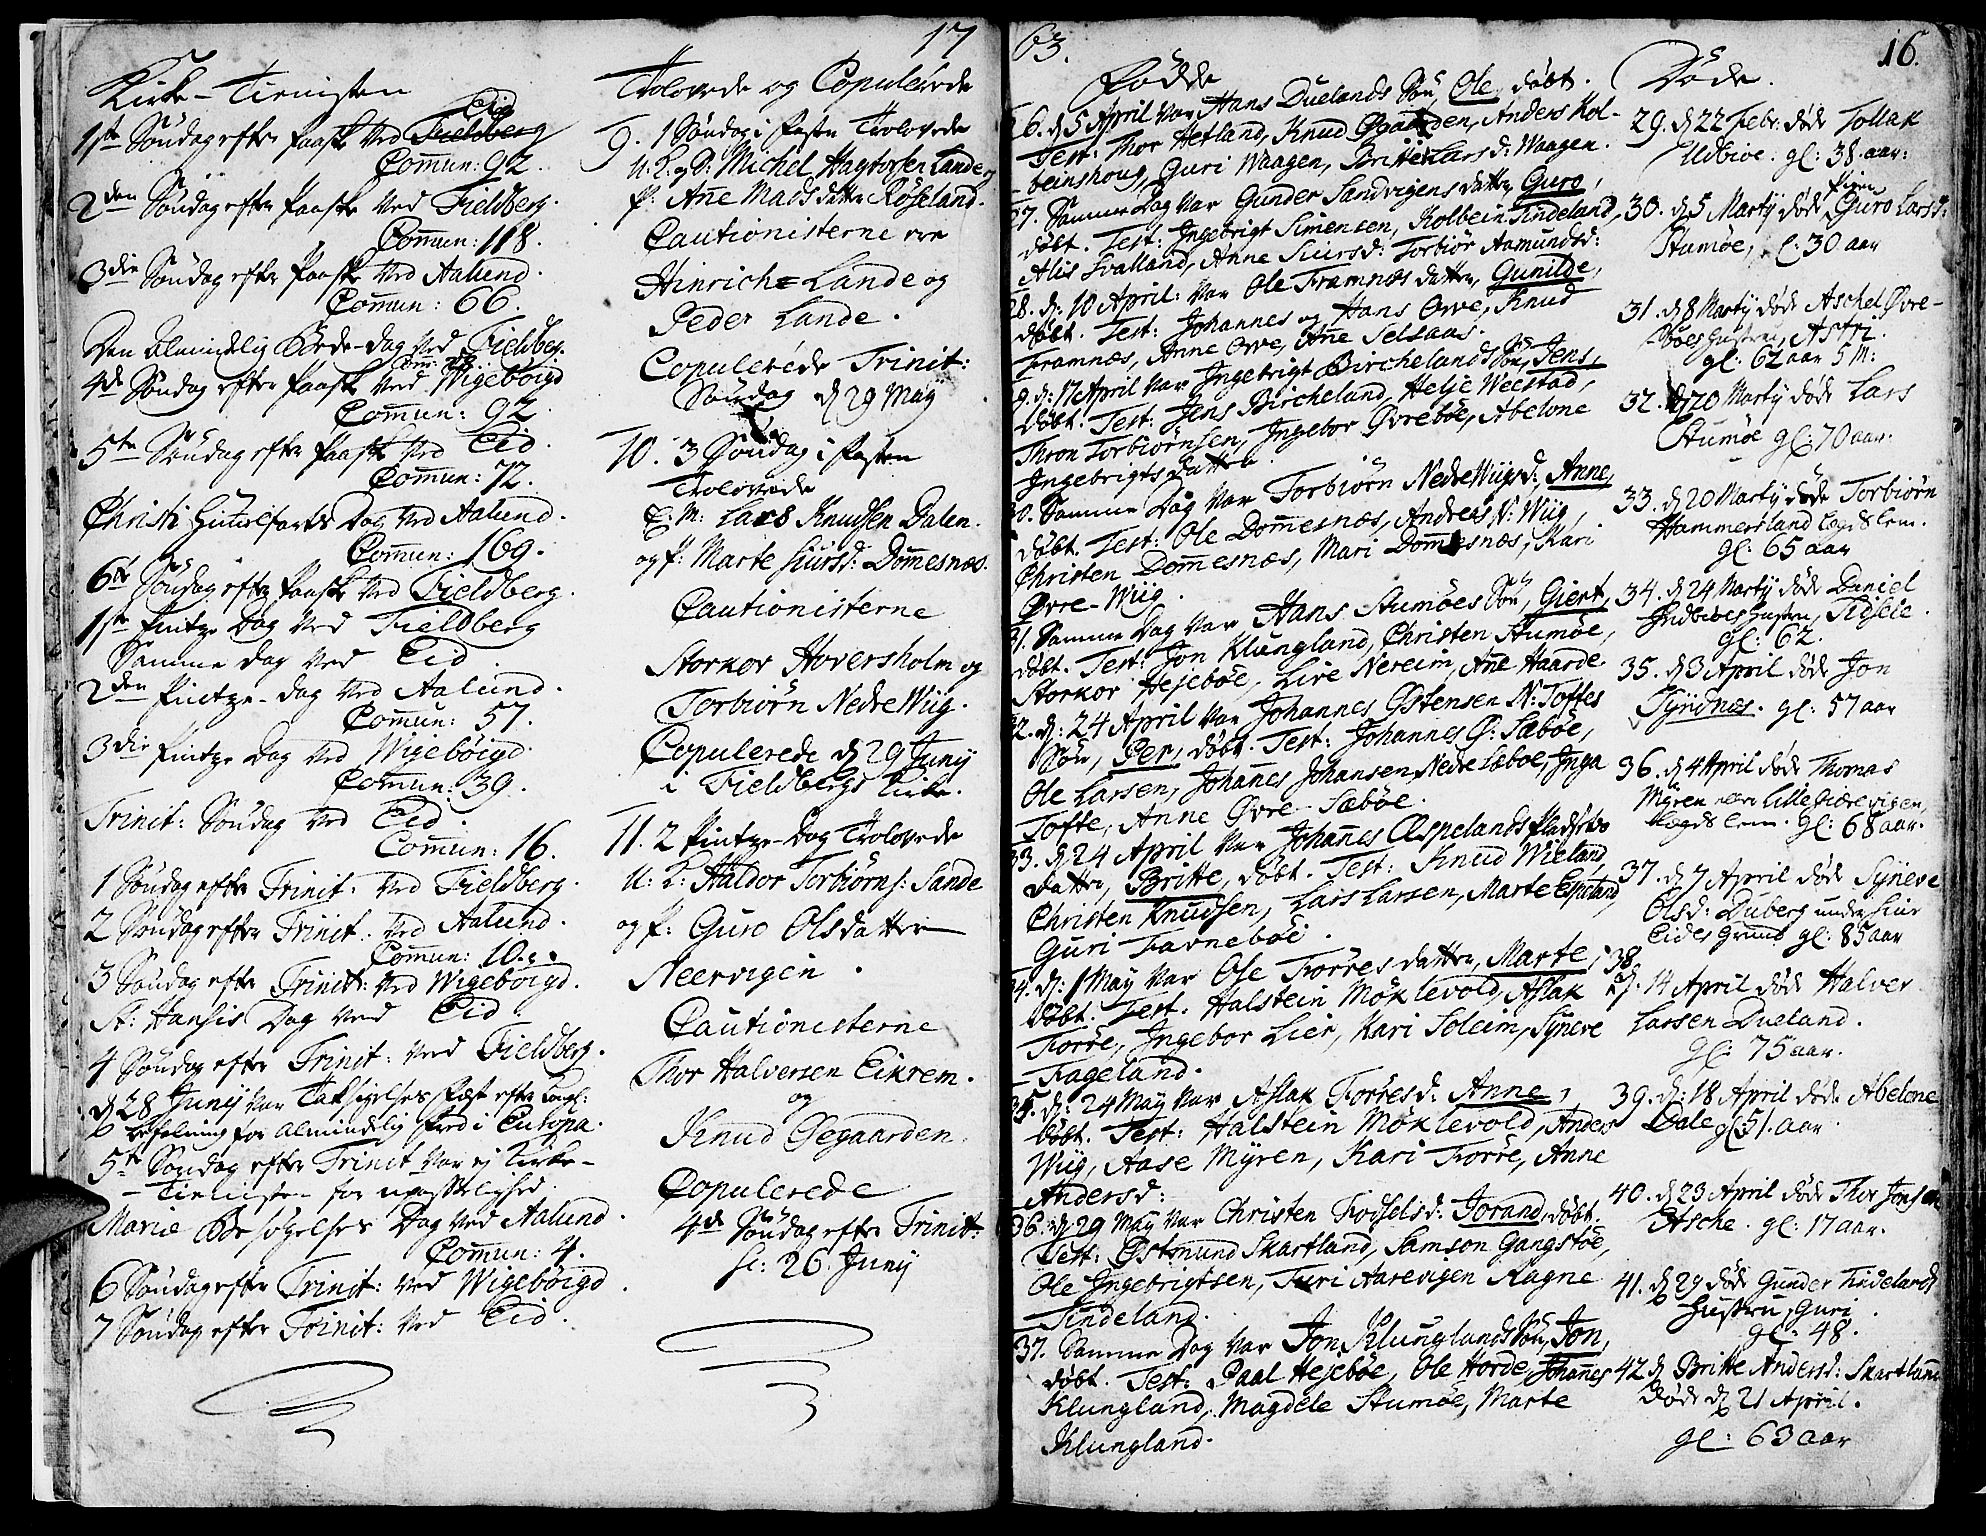 17
Kirke-Tienisten
Eid
1ste Søndag efter Paaske ved Fieldberg
Com̄un: 92.
2den Søndag efter Paaske ved Fieldberg.
Com̄un: 118.
3die Søndag efter Paaske ved Aalund.
Com̄un: 66.
Den Almindelig Bede-Dag ved Fieldberg.
4de Søndag efter Paaske ved Wigebøigd
Com̄un: 92.
5te Søndag efter Paaske ved Eid.
Com̄un: 72.
Christi Himelfarts Dag ved Aalund.
Com̄un: 169.
6te Søndag efter Paaske ved Fieldberg.
1ste Pintze Dag ved Fieldberg
Samme Dag ved Eid.
2den Pintze-Dag ved Aalund.
Com̄un: 57.
3die Pintze Dag ved Wigebøigd.
Com̄un: 39.
Trinit: Søndag ved Eid.
Com̄un: 16.
1 Søndag efter Trinit: ved Fieldberg.
2 Søndag efter Trinit: ved Aalund.
Com̄un: 10.
3 Søndag efter Trinit: ved Wigebøigd.
St: Hansis Dag ved Eid.
4 Søndag efter Trinit: ved Fieldberg.
d 28 Junij var Taksigelses Fæst efter Kongl:
befalning for Almindelig Fred i Europa.
5te Søndag efter Trinit var ej Kirke-
-Tienisten for upasselighed.
Marie Besøgelses Dag ved Aalund.
Com̄un: 4.
6 Søndag efter Trinit: ved Wigebøigd.
7 Søndag efter Trinit: ved Eid.
Trolovede og Copulerede
9. 1 Søndag i Fasten Trolovede
U: K: og S: Michel Hagtorsen Lande og
P: Anne Mads datter Røseland.
Cautionisterne ere
Hinrich Lande og
Peder Lande.
Copulerede Trinit:
Søndag d 29 May
10. 3 Søndag i Fasten
Trolovede
E: M: Lars Knudsen Dalen.
og P: Marte Siursd: Dom̄esnæs.
Cautionisterne
Storkor Hoversholm og
Torbiørn Nedre Wiig.
Copulerede d 29 Junij
i Fieldbergs Kirke.
11. 2 Pintze-Dag Trolovede
U: K: Haldor Torbiørns: Sande
og P: Guro Olsdatter
Neervigen.
Cautionisterne
Thor Halversen Eikrem.
og
Knud Øegaarden.
Copulerede
4de Søndag efter Trinit:
sc: 26 Junij
63.
16.
Fødde
26. d 5 April var Hans Duelands Søn Ole, døbt.
Test: Thor Hetland, Knud Øgaarden, Anders Kol-
beinshoug, Guri Waagen, Britte Larsd: Waagen.
27. Samme Dag var Gunder Sandvigens datter Guro,
døbt. Test: Ingebrigt Simensen, Kolbein Tindeland,
Alis Fralland, Anne Siursd: Torbiør Aamundsd:
28. d: 10 April: var Ole Framnæs datter, Gunilde,
døbt. Test: Johannes og Hans Orre, Knud
Framnæs, Anne Orre, Anne Selsaas.
9. d: 17 April var Ingebrigt Birchelands Søn, Jens,
døbt. Test: Jens Bircheland, Helje Weestad,
Thron Torbiørnsen, Ingebor Øvrebøe, Abelone
Ingebrigtsdatter.
30. Samme Dag var Torbiørn Nedre Wiigsd: Anne,
døbt. Test: Ole Dom̄esnæs, Andreas N: Wiig,
Christen Dom̄esnæs, Mari Dom̄esnæs, Kari
Øvre-Wiig.
31. Samme Dag var Hans Stumøes Søn, Giert,
døbt. Test: Jon Klungland, Christen Stumøe,
Storkor Hejebøe, Lire Nereim, Anne Haarde
32. d: 24 April var Johannes Østensen N: Toftes
Søn, Per, døbt. Test: Johannes Ø: Sæbøe,
Ole Larsen, Johannes Johansen Nedre Sæbøe, Inga
Tofte, Anne Øvre-Sæbøe.
33. d 24 April var Johannes Espelands Pladsets
datter, Britte, døbt. Test: Knud Wieland,
Christen Knudsen, Lars Larsen, Marte Espeland,
Guri Farnebøe.
34. d: 1 May var Ole Førres datter, Marte,
døbt. Test: Halstein Møklevold, Aslak
Førre, Ingebor Lier, Kari Soleim, Synere
Fageland.
35. d: 24 May var Aslak Førresd: Anne,
døbt. Test: Halstein Møklevold, Anders
Wiig, Aase Myren, Kari Førre, Anne
Andersd:
36. d 29 May var Christen Fodselsd: Jorand, døbt.
Test: Østmund Skartland, Samson Gangstøe,
Ole Ingebrigtsen, Turi Aarevigen Ragne
Tindeland.
37. Samme Dag var Jon Klunglands Søn, Jon,
døbt. Test: Paal Hejebøe, Ole Horde, Johannes
Klungland, Magdele Stumøe, Marte
Klungland.
Døde.
29. d 22 Febr: døde Tollak
Udbioe. gl: 38. aar:
Pigen
30. d 5 Martij døde Guro Larsd:
Stumøe, gl: 30 aar
31. d 8 Martij døde Aschel Øvre-
bøes Hustru, Astri.
gl: 62 aar 5 M:
32. d 20 Martij døde Lars
Stumøe gl: 70 aar.
33. d 20 Martij døde Torbiørn
Hammersland Legdslem.
gl: 65 aar
34. d 24 Martij døde Daniel
Indbioes Hustru, Tidsele.
gl: 62.
35. d 3 April døde Jon
Tyndnæs. gl: 57 aar
36. d 4 April døde Thomas
Myren Lille Fierevigen,
Legdslem. gl: 68 aar.
37. d 7 April døde Synere
Olsd: Duberg under
Eides Grund gl: 85 aar
38.
d: 14 April døde Halver
Larsen Dueland.
gl: 75 aar.
39. d: 18 April døde Abelone
Dale gl: 51. aar.
40. d 23 April døde Thor Jonsen
Etsche. gl: 17 aar.
41. d 29 døde Gunder Tindelands
Hustru, Guri.
gl: 48.
42 d Britte Andersd: Skartland
døde d 21 April.
gl: 63 aar